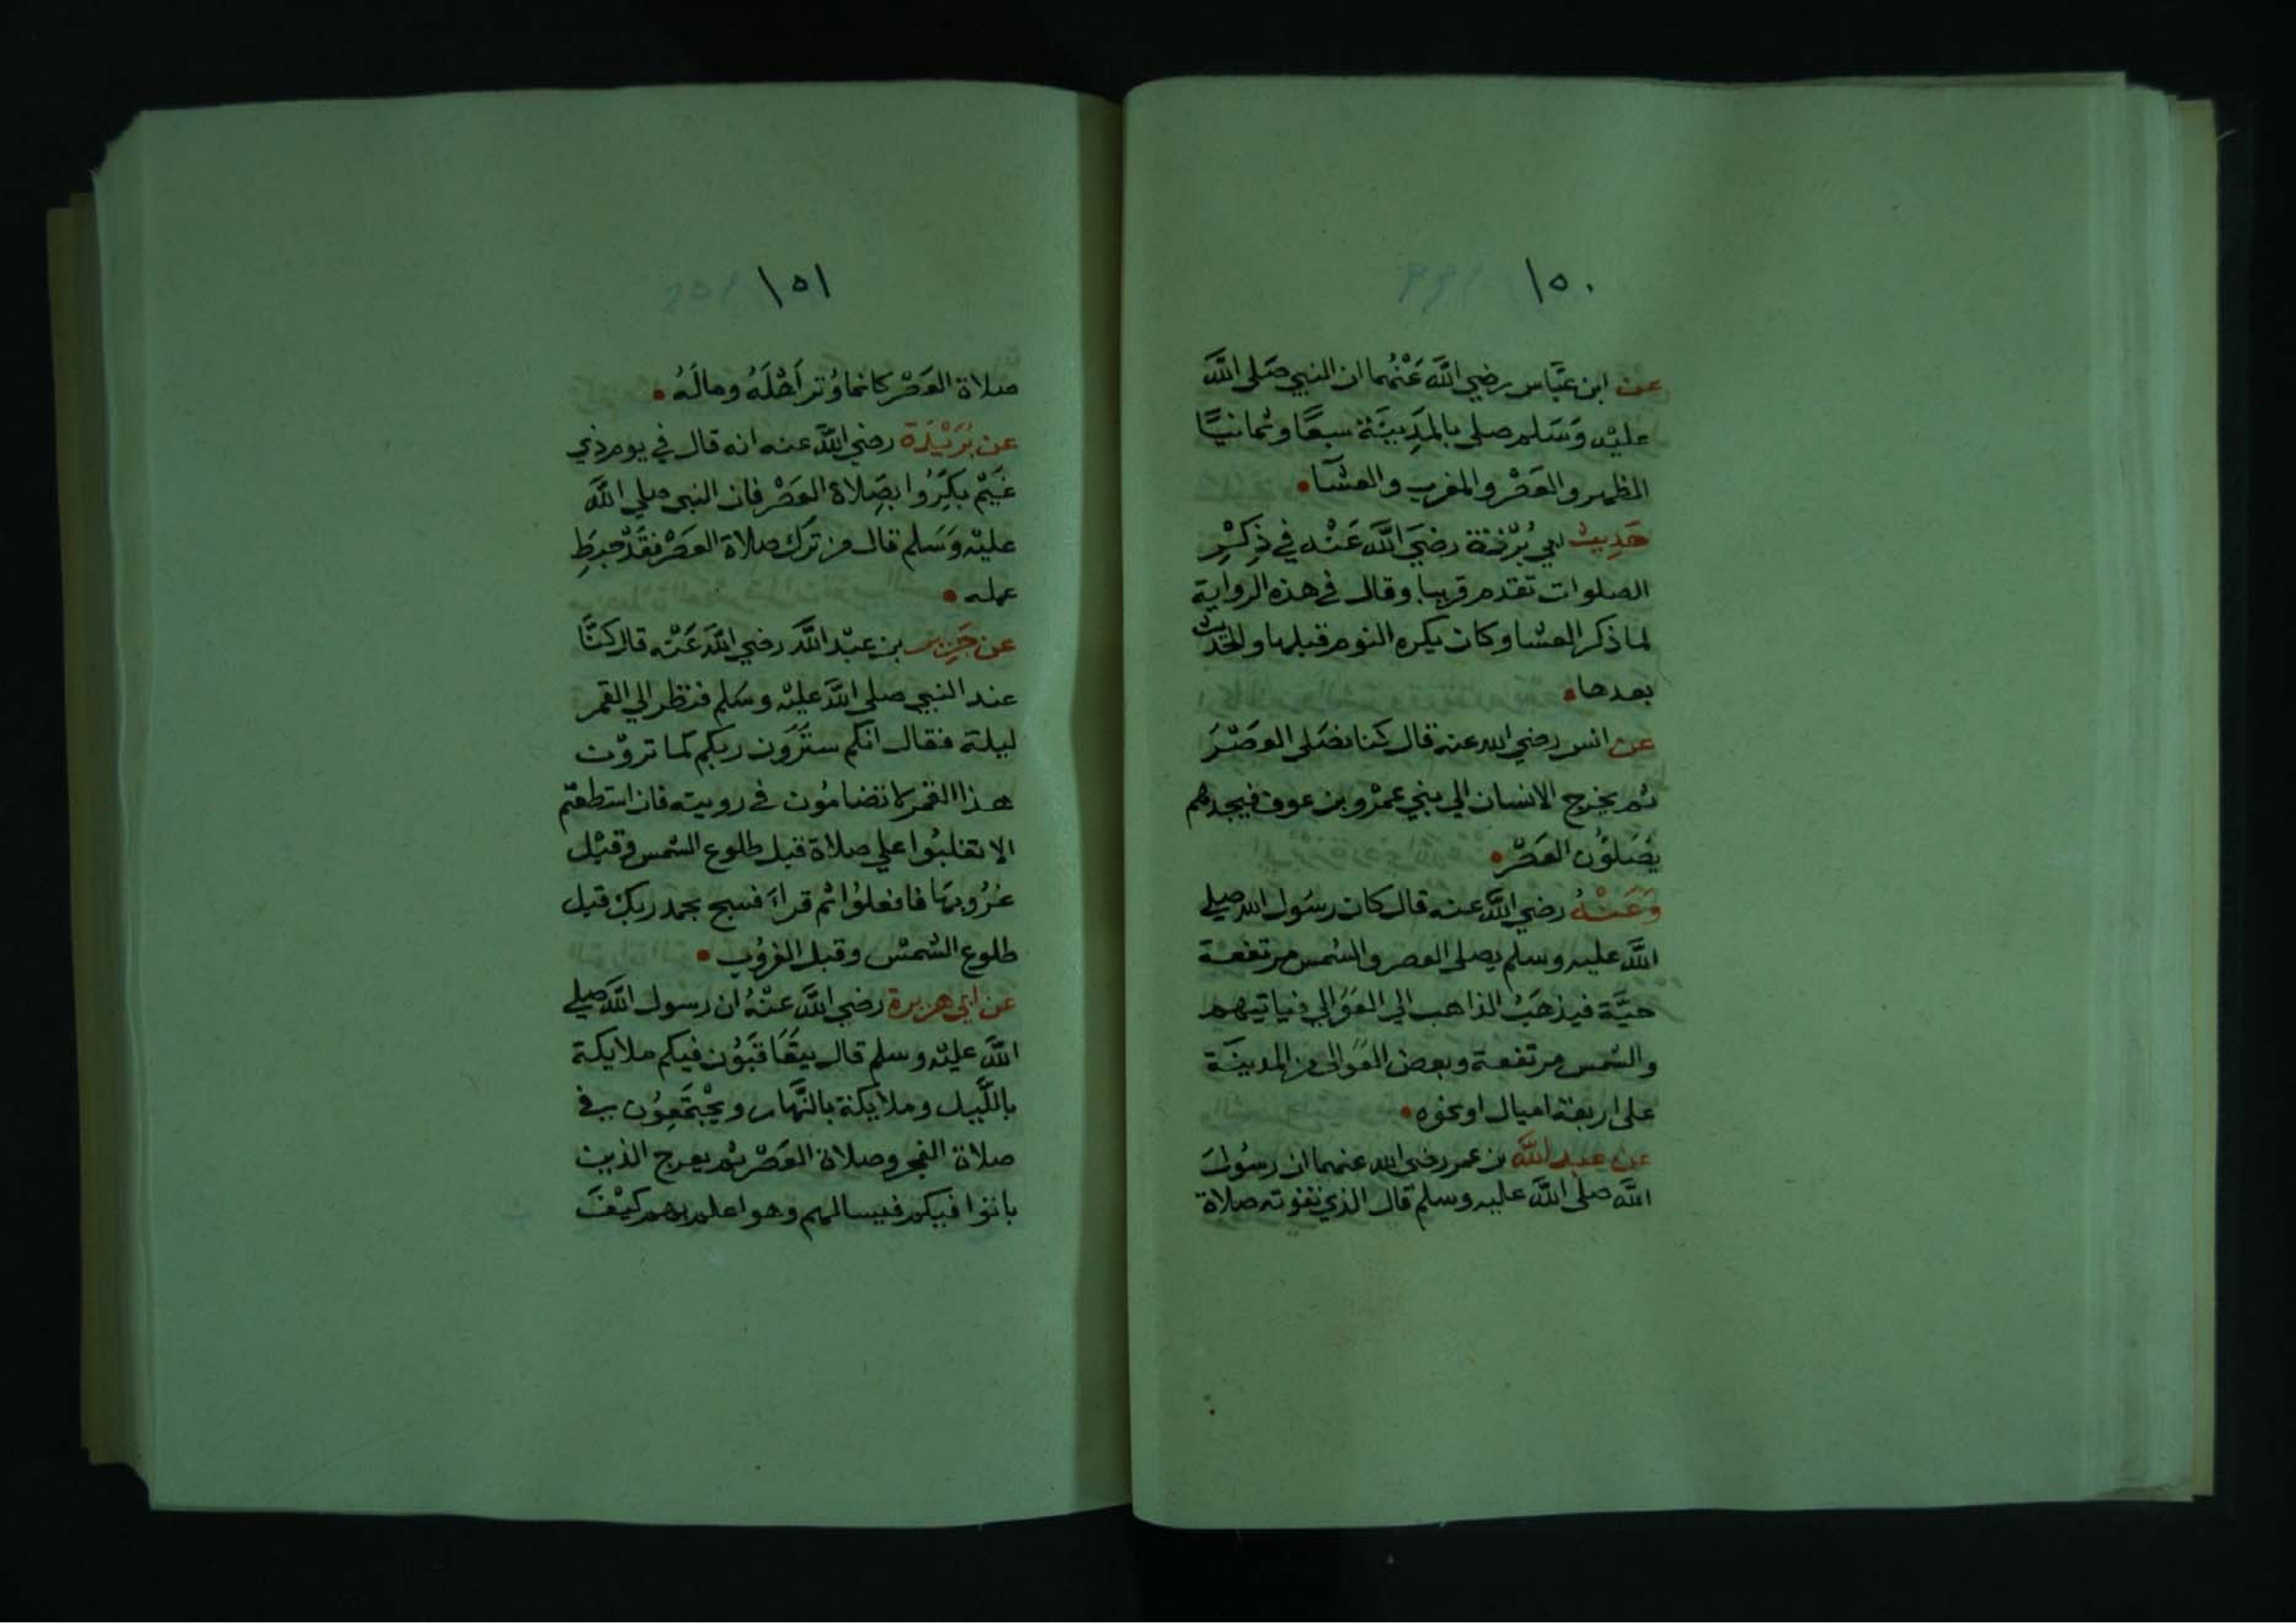 ١٥٠
عن ابن عبَّاس رضي اللَّه عَنْهُما ان النبي صَلى اللَّه
عليْه وَسَلم صلى بالمَدِينَة سبعًا وثمانيًا
الظهر والعَصْر والمغرب والعشآء
حَدِيث ابي بُرْزة رضيَ اللَّه عَنْه في ذِكْرِ
الصلوات تقدم قريبا وقال في هذه الرواية
لما ذكر العشا وكان يكره النوم قبلها والحَدِيث
بعدها
عن انس رضي الله عنه قال كنا نصَلى العَصْرَ
ثم يخرج الانسان الي بني عمرْو بن عوف فيجدهم
يُصَلوُن العَصْر
وَعَنْهُ رضي اللَّه عنه قال كان رسُول الله صلي
اللَّه عليه وسلم يصلى العصر والشمس مرتفعة
حيَّة فيذهَبُ الذاهب الي العَوَالي فياتيهم
والشمس مرتفعة وبعض العَوالى من المدينَة
على اربعة اميال او نحوه
عن عبد اللَّه بن عمر رضي الله عنهما ان رسُولَ
اللَّه صلى اللَّه عليه وسلم قال الذي تفوته صلاة
١٥١
صلاة العَصْر كانما وُتر اَهْلَهُ ومالَهُ
عن بُرَيْدَة رضي اللَّه عنه انه قال في يوم ذي
غَيْم بَكِّرُوا بصَلاة العَصْر فان النبي صلي اللَّه
عليْه وَسَلم قال من تَرَك صلاة العصْر فقَدْ حبِطَ
عمله
عن جَرِير بن عبْد اللَّه رضي اللَّه عَنْه قال كنَّا
عند النبي صلى اللَّه عليْه وسَلم فنظر الي القمر
ليلة فقال انكم ستَرَون ربكم كما تروْن
هذا القمر لا تضامُون في رويته فان استطعتم
الا تغلبُوا علي صلاة قبل طلوع الشمس وقبْل
غرُوبهَا فافعلوُا ثم قراَ فسبح بحمد ربك قبل
طلوع الشمْس وقبل الغرُوب
عن ابي هريرة رضي اللَّه عنْهُ ان رسول اللَّه صلي
اللَّه عليْه وسلم قال يتَعَاقَبُون فيكم ملايكة
باللَّيل وملايكة بالنَّهار ويجْتَمِعوُن في
صلاة الفجر وصلاة العَصْر ثم يعرج الذين
باتوا فيكم فيسالهم وهو اعلم بهم كيْفَ